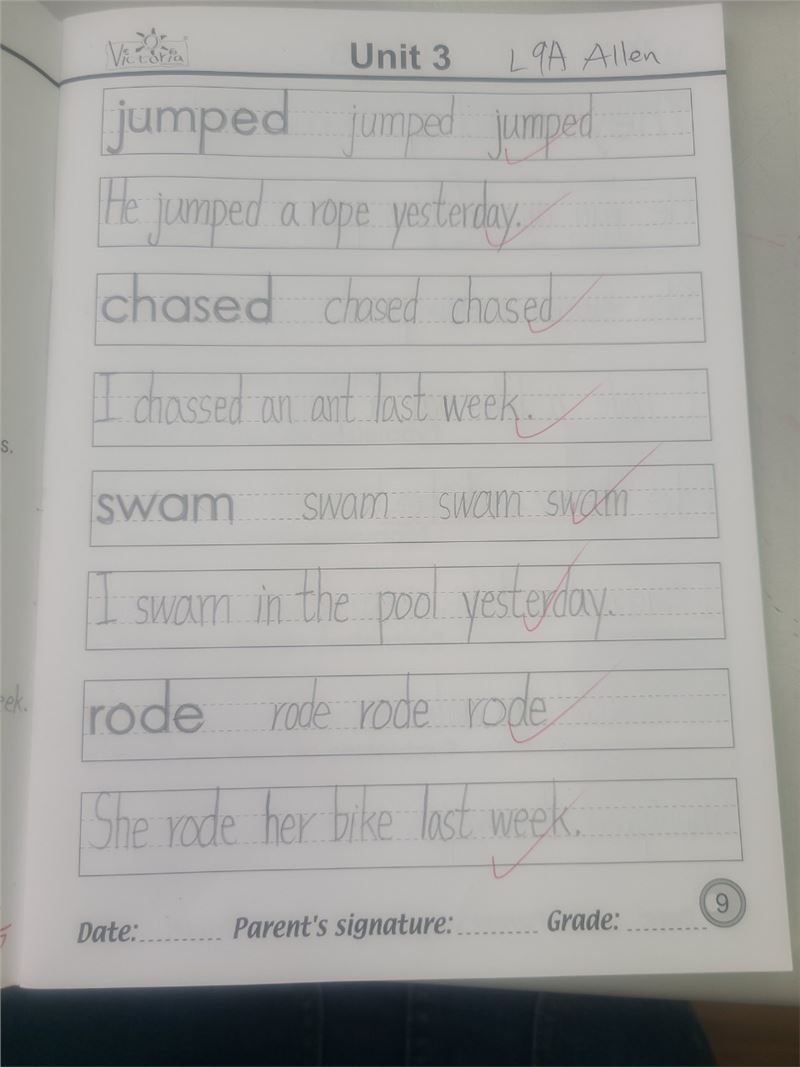 Victoria Unit 3 L9A Allen
jumped jumped jumped
He jumped a rope yesterday.
chased chased chased
s.
I chassed an ant last week.
swam swam swam swam
I swam in the pool yesterday.
eek.
rode rode rode rode
She rode her bike last week.
9
Date: Parent's signature: Grade: